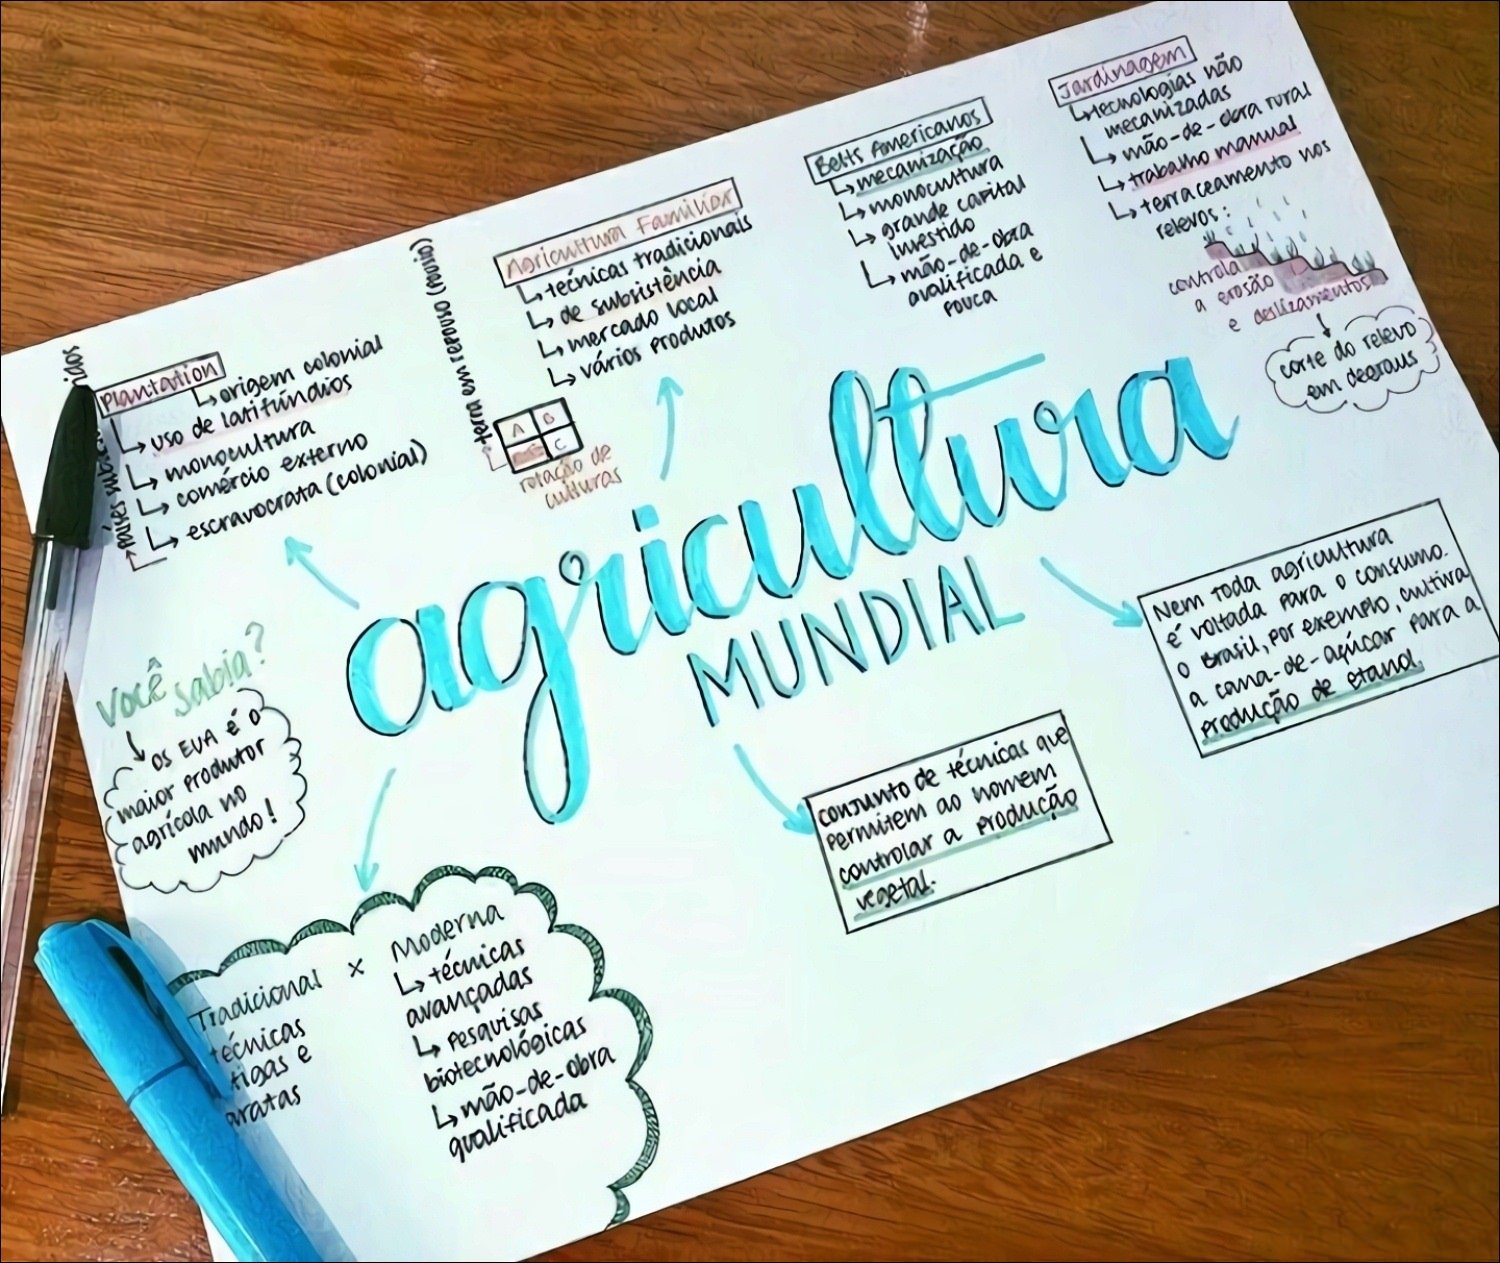 Plantation
↳ origem colonial
↳ uso de latifúndios
↳ monocultura
↳ comércio externo
↳ escravocrata (colonial)
países
Agricultura Familiar
↳ técnicas tradicionais
↳ de subsistência
↳ mercado local
↳ vários produtos
terra em repouso (pousio)
A B
C
rotação de
culturas
Belts Americanos
↳ mecanização
↳ monocultura
↳ grande capital
investido
↳ mão-de-obra
qualificada e
pouca
Jardinagem
↳ tecnologias não
mecanizadas
↳ mão-de-obra rural
↳ trabalho manual
↳ terraceamento nos
relevos:
controla
a erosão
e deslizamentos
corte do relevo
em degraus
agricultura
MUNDIAL
Você
sabia?
↳ OS EUA é o
maior produtor
agrícola no
mundo!
Nem toda agricultura
é voltada para o consumo.
O Brasil, por exemplo, cultiva
a cana-de-açúcar para a
produção de etanol.
conjunto de técnicas que
permitem ao homem
controlar a produção
vegetal.
Tradicional x Moderna
técnicas
↳ técnicas
avançadas
↳ pesquisas
biotecnológicas
↳ mão-de-obra
qualificada